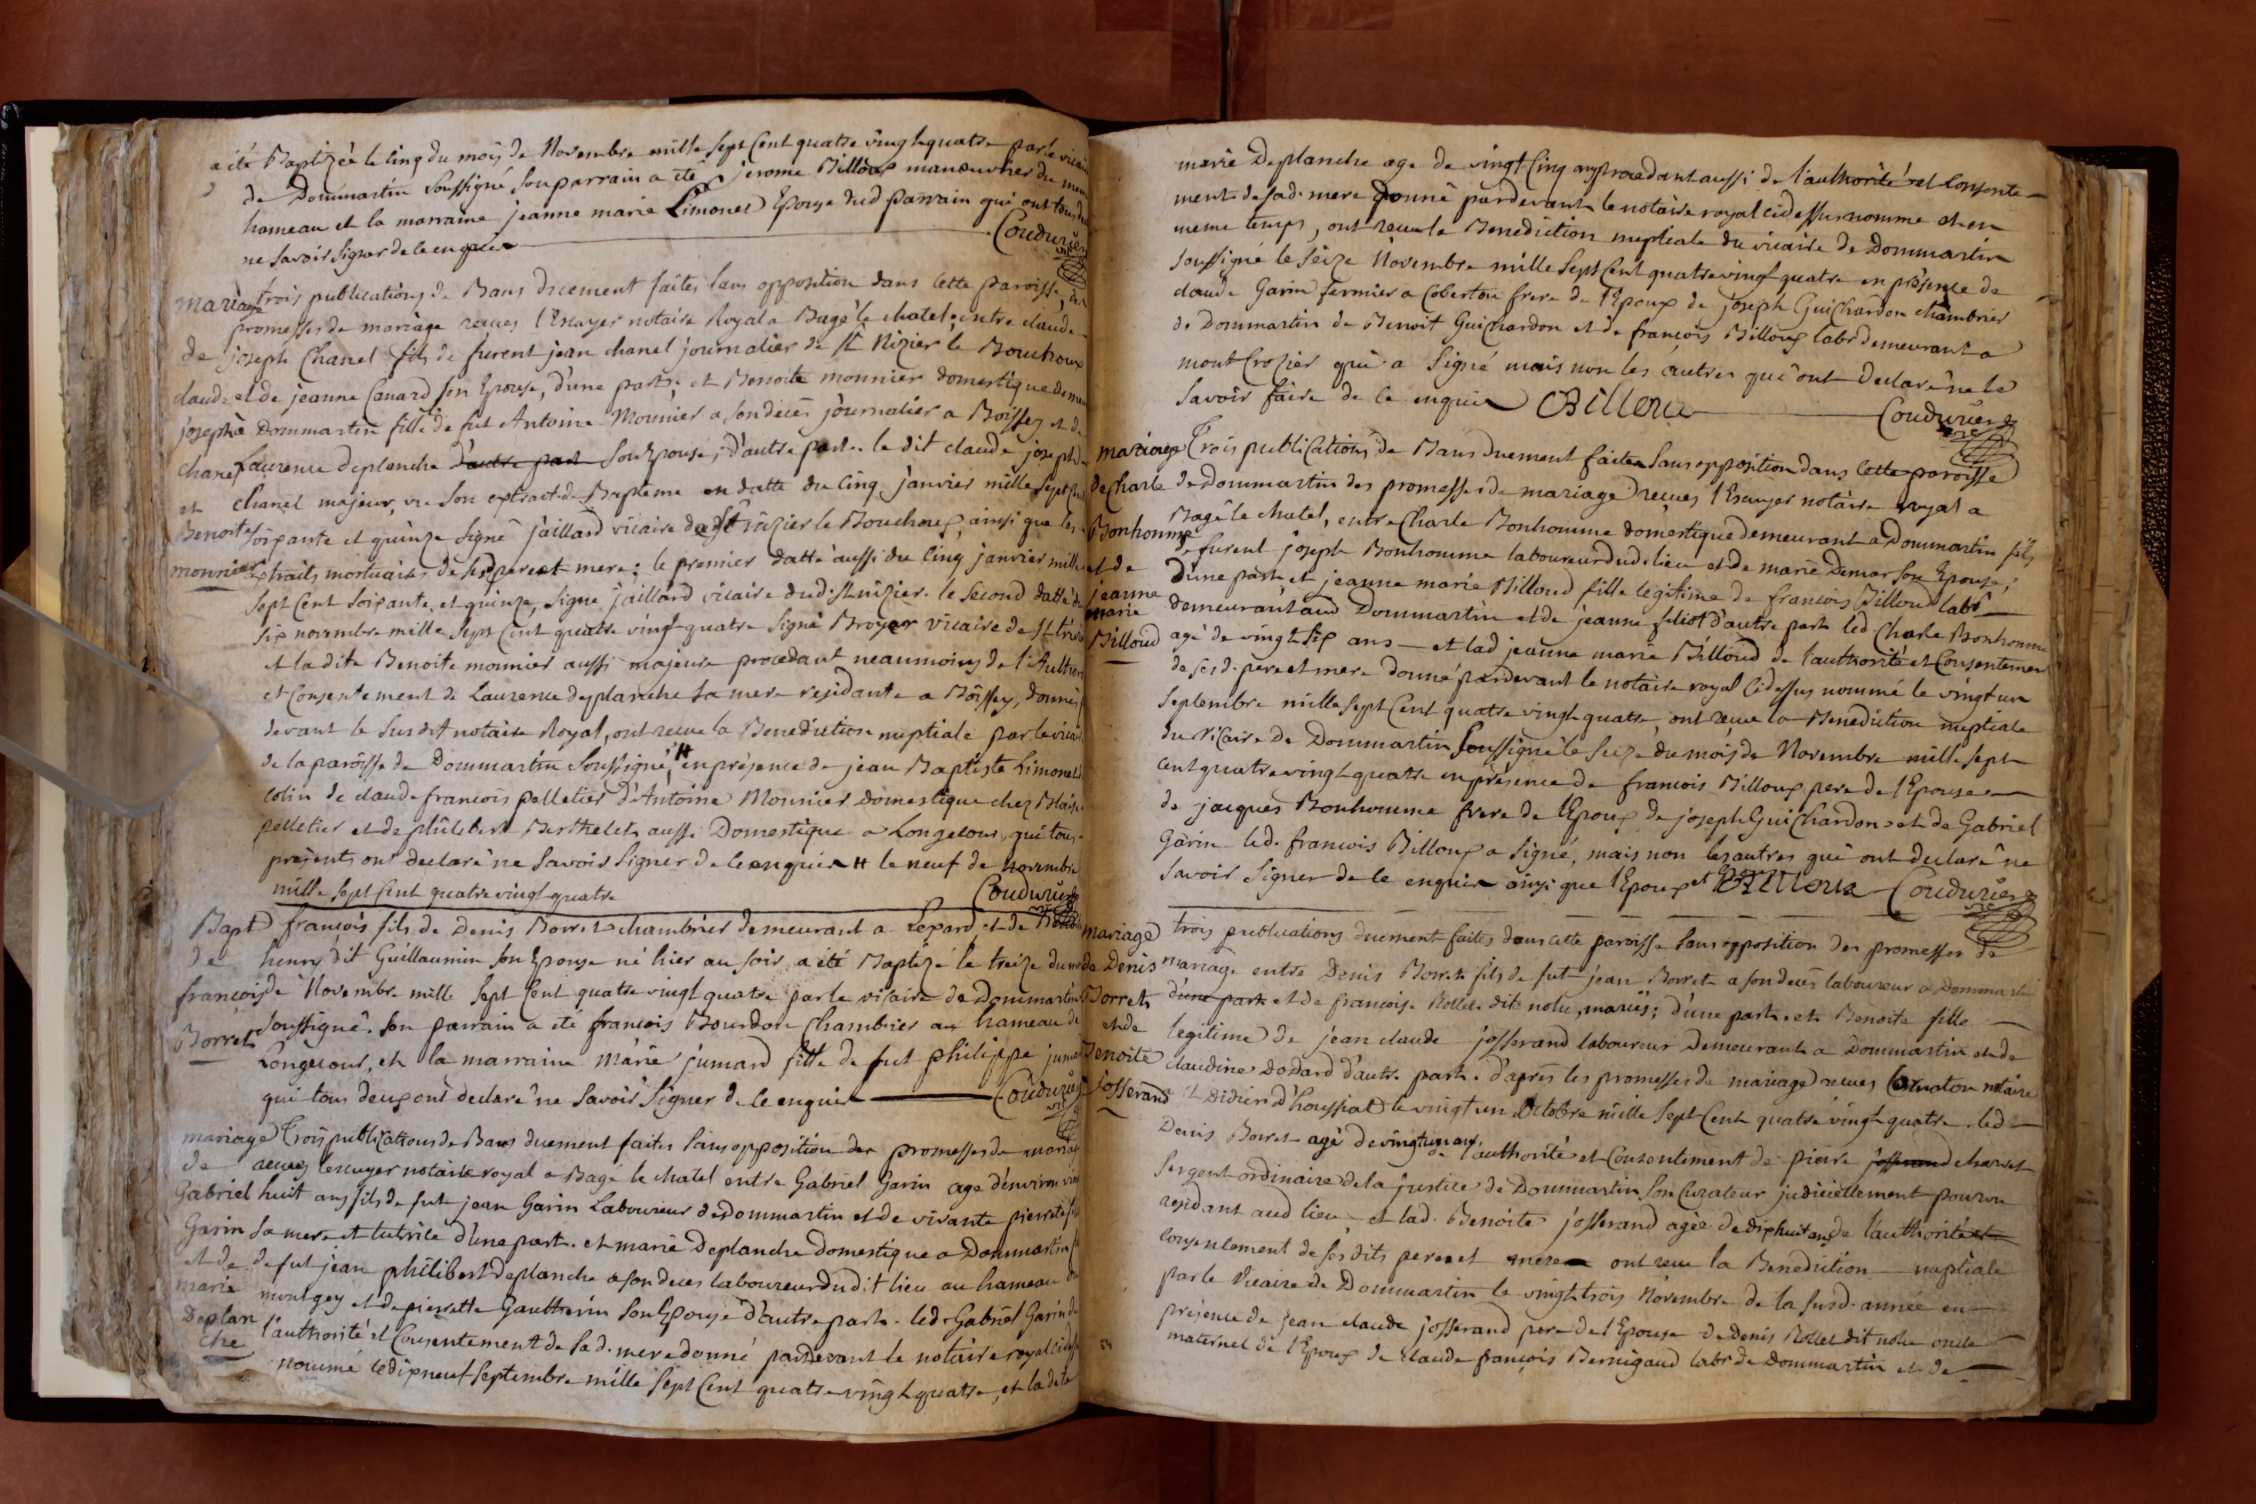 a été Baptizée le Cinq du mois de Novembre mille sept Cent quatre vingt quatre par le vicaire
de Dommartin soussigné son parrain a été jerome Billoux manoeuvrier du meme
hameau et la marraine jeanne marie Limonet Epouse dud parrain qui ont tous deux
ne savoir signer de ce enquis Couduriez
vic
mariage
de
claude
joseph
chanel
et
Benoite
monnier
trois publications de Bans duement faites sans opposition dans cette paroisse, des
promesses de mariage recues l'Escuyer notaire Royal a Bagé le chatel, entre claude
joseph Chanel fils de furent jean chanel journalier de St Nizier le Bouchoux
et de jeanne Canard son Epouse, d'une part; et Benoite monnier domestique demeu
à Dommartin fille de fut Antoine Monnier a son decès journalier a Boissey et de
Laurence deplanche d'autre part son Epouse; d'autre part. le dit claude joseph
Chanel majeur, vu son extrait de Bapteme en datte du cinq janvier mille sept Cent
soixante et quinze signé jaillard vicaire de St nizier le Bouchoux, ainsi que les
extraits mortuaires de ses pere et mere; le premier datté aussi du cinq janvier mille
sept Cent soixante et quinze, signé jaillard vicaire dud. St nizier. le second datté du
six novembre mille sept Cent quatre vingt quatre signé Broyer vicaire de St
et la dite Benoite monnier aussi majeure procedant neaumoins de l'Authori
et Consentement de Laurence deplanche sa mere residante a Boissey, donné
devant le susdit notaire Royal, ont recue la Benediction nuptiale par le vicaire
de la paroisse de Dommartin soussigné, # en présence de jean Baptiste Limonet
Colin de claude francois pelletier d'Antoine Monnier Domestique chez Blaise
pelletier et de philibert Berthelet aussi Domestique a Longecour, qui tous
présents ont declaré ne savoir signer de ce enquis # le neuf de novembre
mille sept Cent quatre vingt quatre Couduriez
vic
Bapt
de
francois
Borret
francois fils de Denis Borret chambrier demeurant a Lépard et de
henry dit Guillaumin son Epouse né hier au soir a été Baptizé le treize du mois
de Novembre mille sept Cent quatre vingt quatre par le vicaire de Dommartin
soussigné. son parrain a été francois Bourdon Chambrier au hameau de
Longecour, et la marraine marie jumard fille de fut philippe jumard
qui tous deux ont declaré ne savoir signer de ce enquis Couduriez
vic
mariage
de
Gabriel
Garin
et de
marie
Deplan
che
Trois publications de Bans duement faites sans opposition des promesses de mariage
recues l'escuyer notaire royal a Bagé le chatel entre Gabriel Garin agé d'environ vingt
huit ans fils de fut jean Garin Laboureur de Dommartin et de vivante pierrette
sa mere et tutrice d'une part. et marie Deplanche domestique a Dommartin
de fut jean philibert deplanche a son deces laboureur dudit lieu au hameau de
montgey et de pierrette Gautherin son Epouse d'autre part. led. Gabriel Garin de
l'authorité et Consentement de sad. mere donné pardevant le notaire royal cidessus
nommé le dixneuf septembre mille sept Cent quatre vingt quatre, et la dite
marie Deplanche age de vingt Cinq ans procedant aussi de l'authorité et Consente
ment de sad. mere donné pardevant le notaire royal cidessus nommé et en
meme temps, ont recue la Benediction nuptiale du vicaire de Dommartin
soussigné le seize Novembre mille sept Cent quatre vingt quatre en présence de
claude Garin fermier a Coberton frere de l'Epoux de joseph Guichardon chambrier
de Dommartin de Benoit Guichardon et de francois Billoux labr demeurant a
mont Crozier qui a signé mais non les autres qui ont declaré ne le
savoir faire de ce enquis Billoux Couduriez
vic
mariage
de Charle
Bonhomme
et de
jeanne
marie
Billoud
Trois publications de Bans duement faites sans opposition dans cette paroisse
de Dommartin des promesses de mariage recues l'Escuyer notaire royal a
Bagé le chatel, entre Charle Bonhomme domestique demeurant a Dommartin fils
de furent joseph Bonhomme laboureur dud. lieu et de marie Demar son Epouse;
d'une part et jeanne marie Billoud fille legitime de francois Billoud labr
demeurant aud Dommartin et de jeanne feliot d'autre part led Charle Bonhomme
agé de vingt six ans et lad jeanne marie Billoud de l'authorité et Consentement
de ses d. pere et mere donné pardevant le notaire royal cidessus nommé le vingt un
septembre mille sept Cent quatre vingt quatre, ont recue la Benediction nuptiale
du vicaire de Dommartin soussigné le seize du mois de Novembre mille sept
cent quatre vingt quatre en présence de francois Billoux pere de l'Epouse
de jacques Bonhomme frere de l'Epoux de joseph Guichardon et de Gabriel
Garin led. francois Billoux a signé, mais non les autres qui ont declaré ne
savoir signer de ce enquis ainsi que l'Epoux et Billoux Couduriez
vic
mariage
de Denis
Borret
et de
Benoite
josserand
trois publications duement faites dans cette paroisse sans opposition des promesses de
mariage entre Denis Borret fils de fut jean Borret a son decès laboureur a Dommartin
d'une part et de francoise Rollet dite notu, mariés; d'une part. et Benoite fille
legitime de jean claude josserand laboureur demeurant a Dommartin et de
claudine Dodard d'autre part. d'après les promesses de mariage recues notaire
a St Didier d'houssiat le vingt un Octobre mille sept Cent quatre vingt quatre. led
Denis Borret agé de vingt un ans de l'authorité et Consentement de pierre josserand charvet
sergent ordinaire de la justice de Dommartin son Curateur judiciellement pourvu
residant aud lieu, et lad. Benoite josserand agée de dixhuit ans de l'authorité et
consentement de ses dits pere et mere ont recue la Benediction nuptiale
par le Vicaire de Dommartin le vingt trois Novembre de la susd. année en
présence de jean claude josserand pere de l'Epouse de Denis Rollet dit notu oncle
maternel de l'Epoux de claude françois Bernigaud labr de Dommartin et de